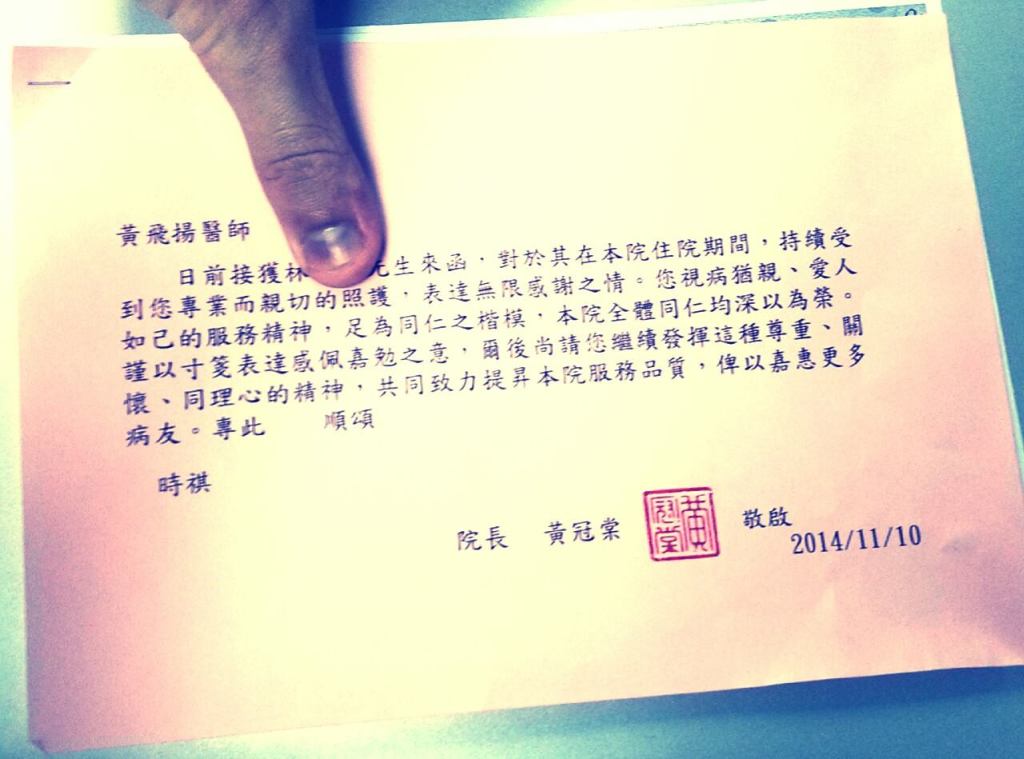 黃飛揚醫師
日前接獲林 先生來函，對於其在本院住院期間，持續受
到您專業而親切的照護，表達無限感謝之情。您視病猶親、愛人
如己的服務精神，足為同仁之楷模，本院全體同仁均深以為榮。
謹以寸箋表達感佩嘉勉之意，爾後尚請您繼續發揮這種尊重、關
懷、同理心的精神，共同致力提昇本院服務品質，俾以嘉惠更多
病友。專此 順頌
時祺
院長 黃冠棠 黃冠棠 敬啟
2014/11/10